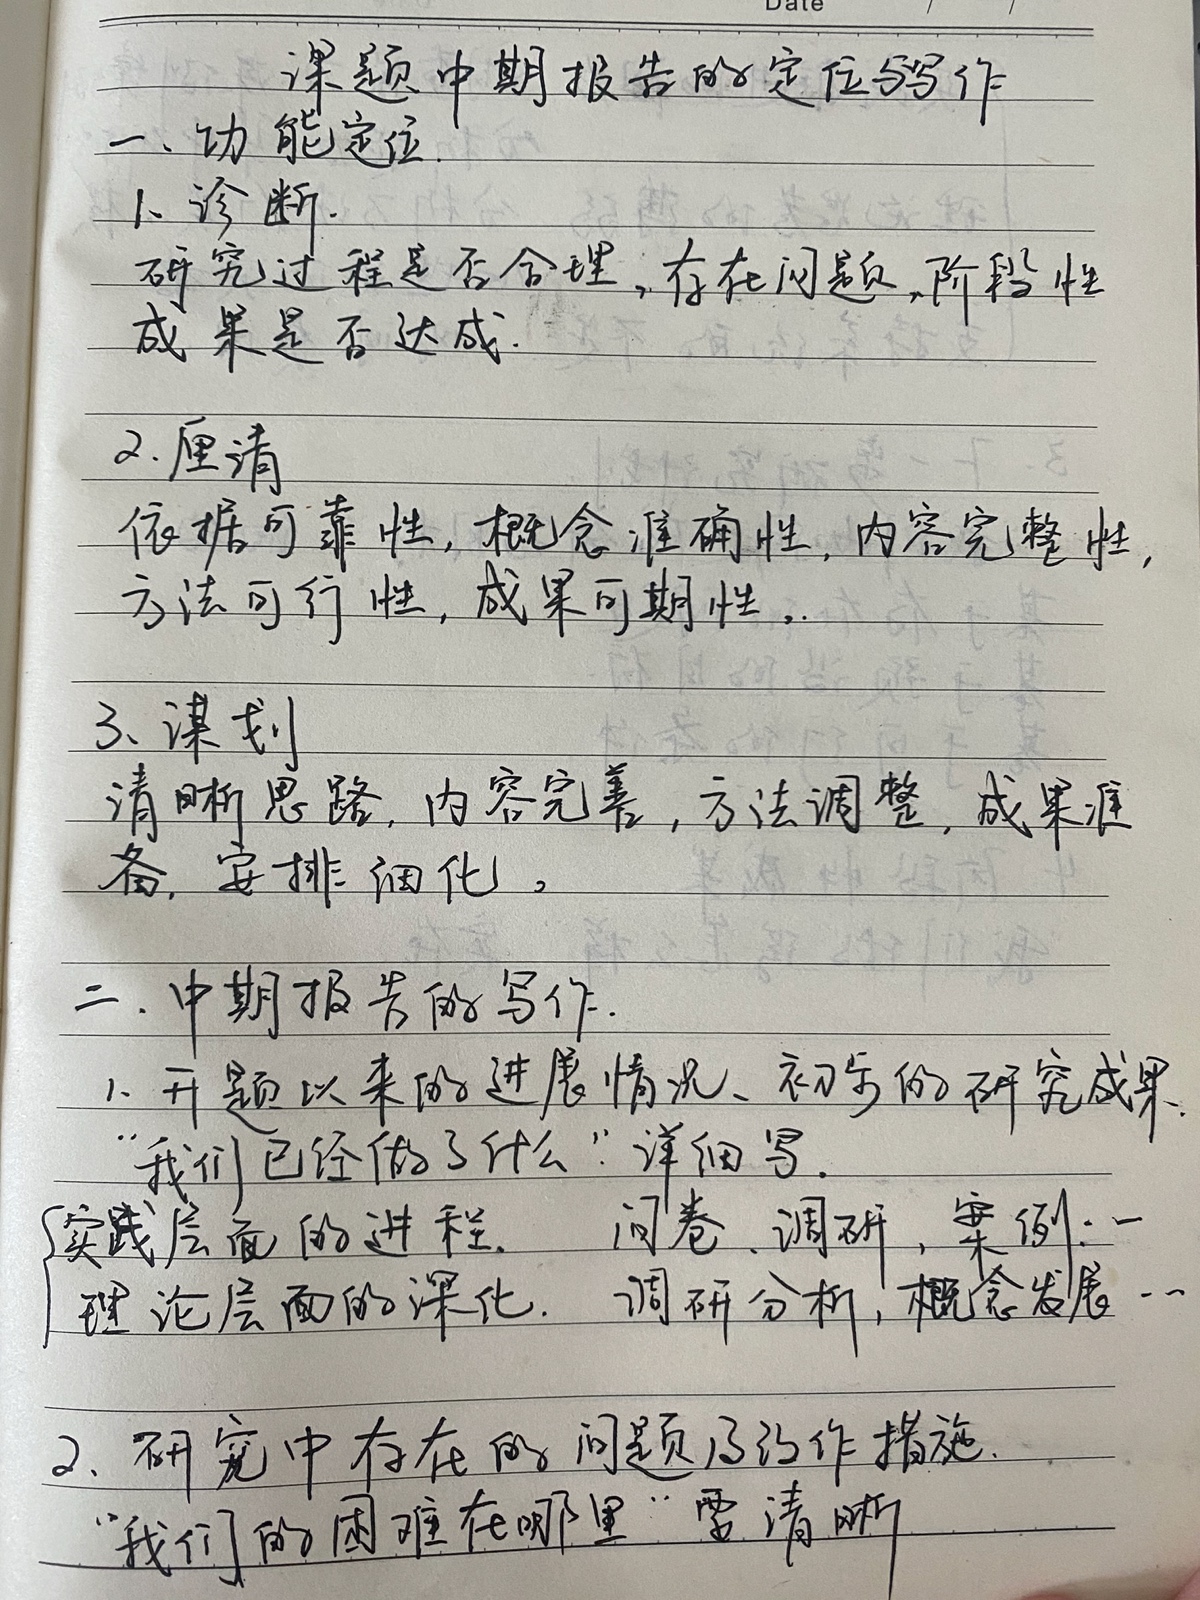 Date / /
课题中期报告的定位与写作
一、功能定位.
1、诊断.
研究过程是否合理,存在问题,阶段性
成果是否达成.
2.厘清
依据可靠性,概念准确性,内容完整性,
方法可行性,成果可期性,.
3、谋划
清晰思路,内容完善,方法调整,成果准
备,安排细化。
二.中期报告的写作.
1、开题以来的进展情况、初步的研究成果.
“我们已经做了什么”详细写.
实践层面的进程. 问卷、调研,案例..一
理论层面的深化. 调研分析,概念发展--
2、研究中存在的问题及作措施.
“我们的困难在哪里”要清晰